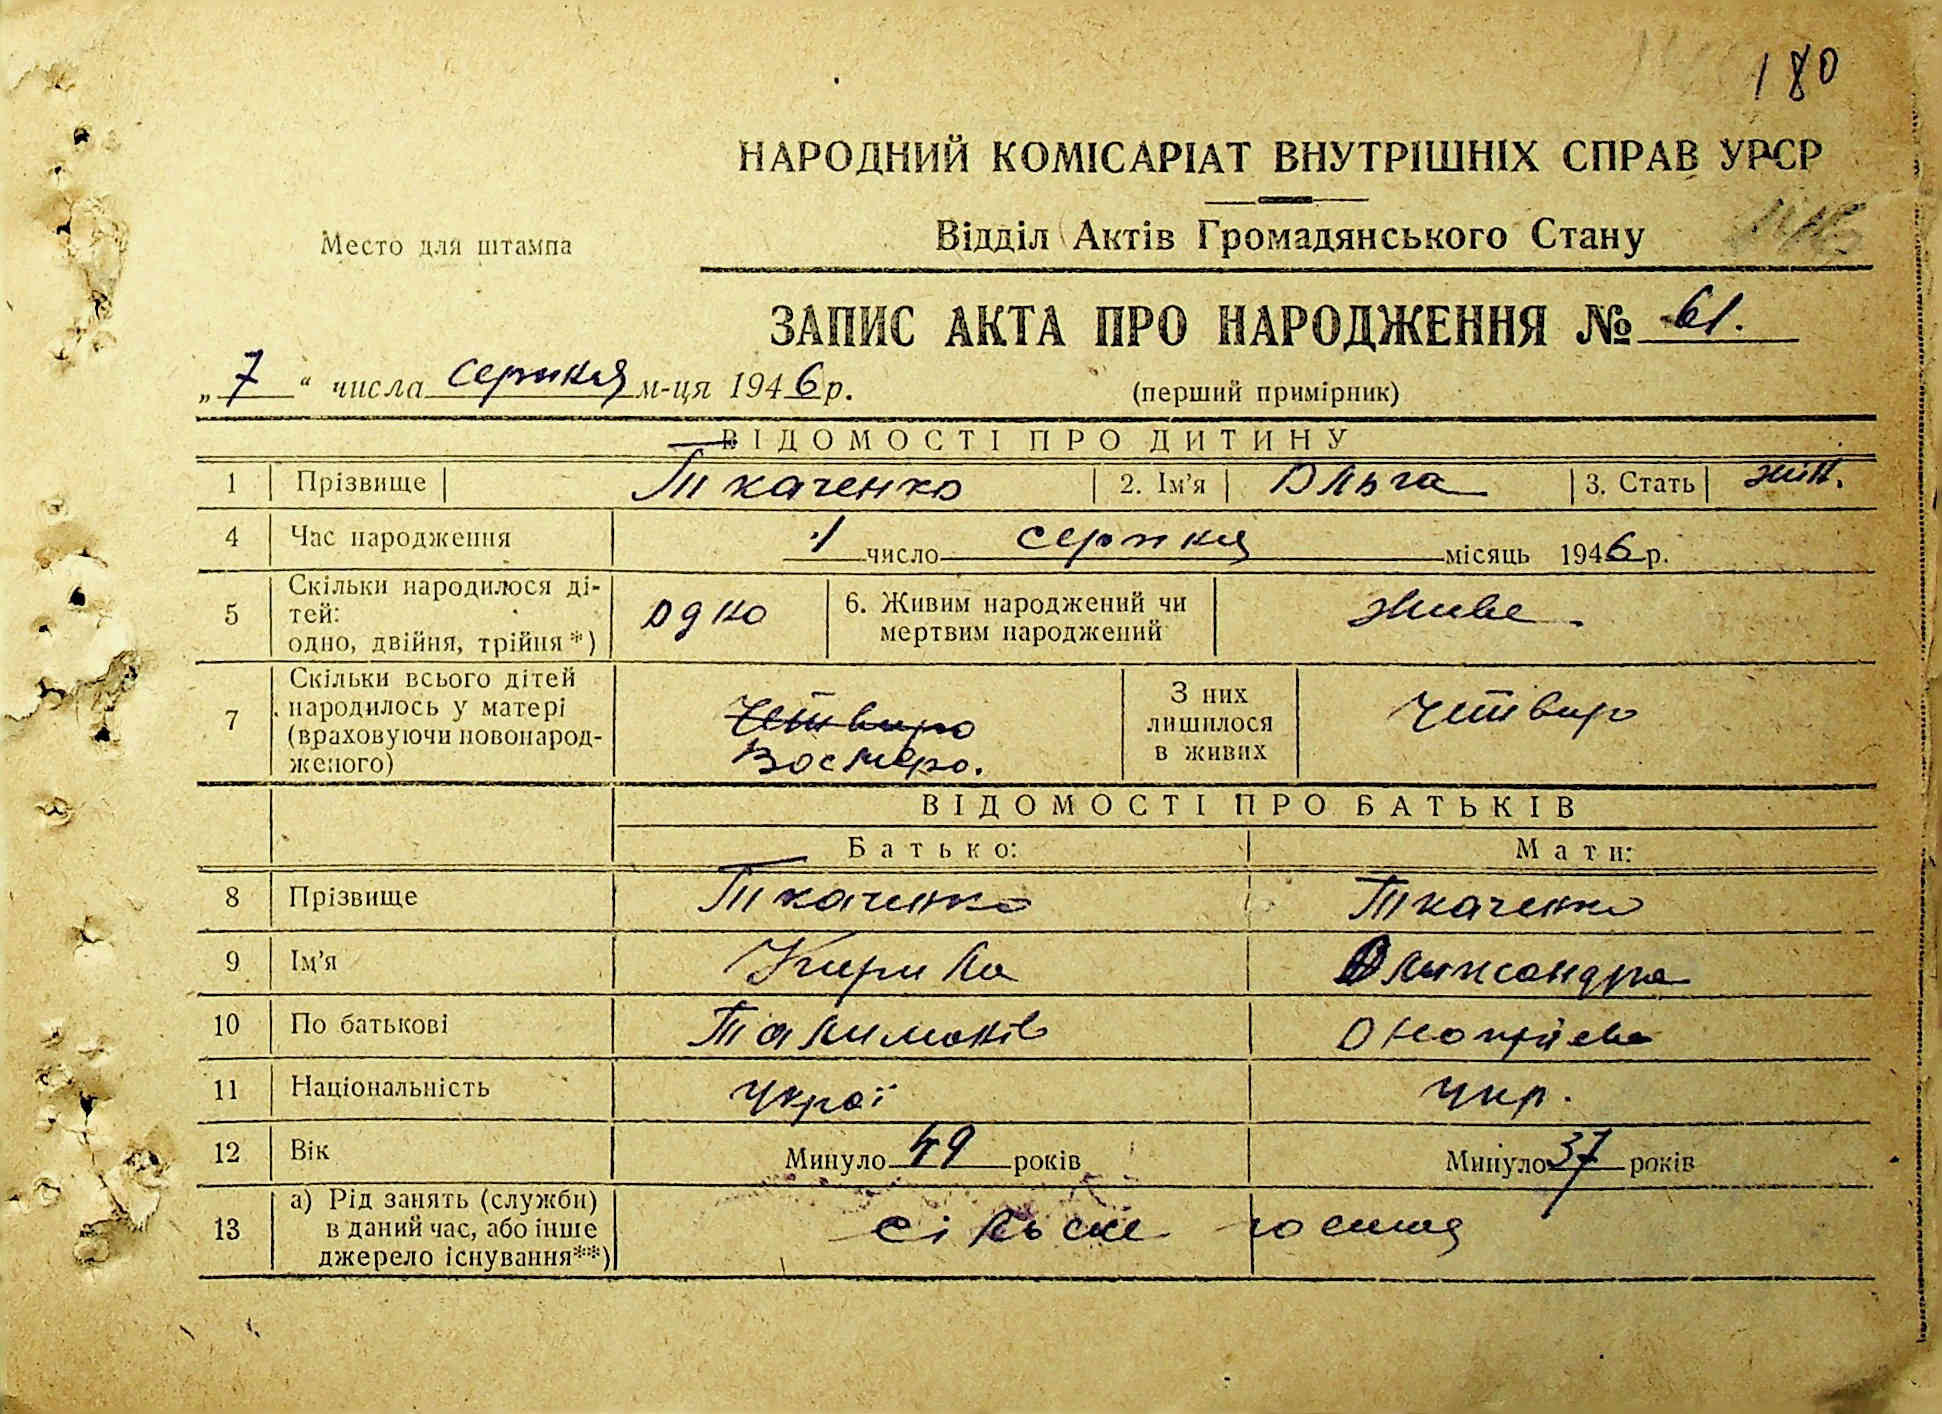 180
НАРОДНИЙ КОМІСАРІАТ ВНУТРІШНІХ СПРАВ УРСР
Место для штампа
Відділ Актів Громадянського Стану
ЗАПИС АКТА ПРО НАРОДЖЕННЯ № 61.
„7“ числа серпня м-ця 1946 р. (перший примірник)
ВІДОМОСТІ ПРО ДИТИНУ
1 Прізвище Ткаченко 2. Ім'я Ольга 3. Стать жін.
4 Час народження 1 число серпня місяць 1946 р.
5 Скільки народилося ді-
тей:
одно, двійня, трійня*) одно 6. Живим народжений чи
мертвим народжений живе
7 Скільки всього дітей
народилось у матері
(враховуючи новонарод-
женого) Четверо
Восмеро. З них
лишилося
в живих Четверо
ВІДОМОСТІ ПРО БАТЬКІВ
Батько: Мати:
8 Прізвище Ткаченко Ткаченко
9 Ім'я Кирило Олександра
10 По батькові
11 Національність украї укр.
12 Вік Минуло 49 років Минуло 37 років
13 а) Рід занять (служби)
в даний час, або інше
джерело існування**) сільске